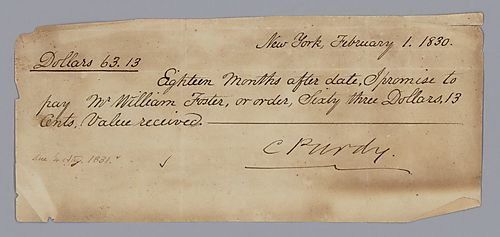 New York, February 1. 1830.
Dollars 63.13
Eighteen Months after date, I promise to
pay Mr William Foster, or order, Sixty three Dollars, 13
Cents, Value received.
C Purdy.
due 4 Aug. 1831.